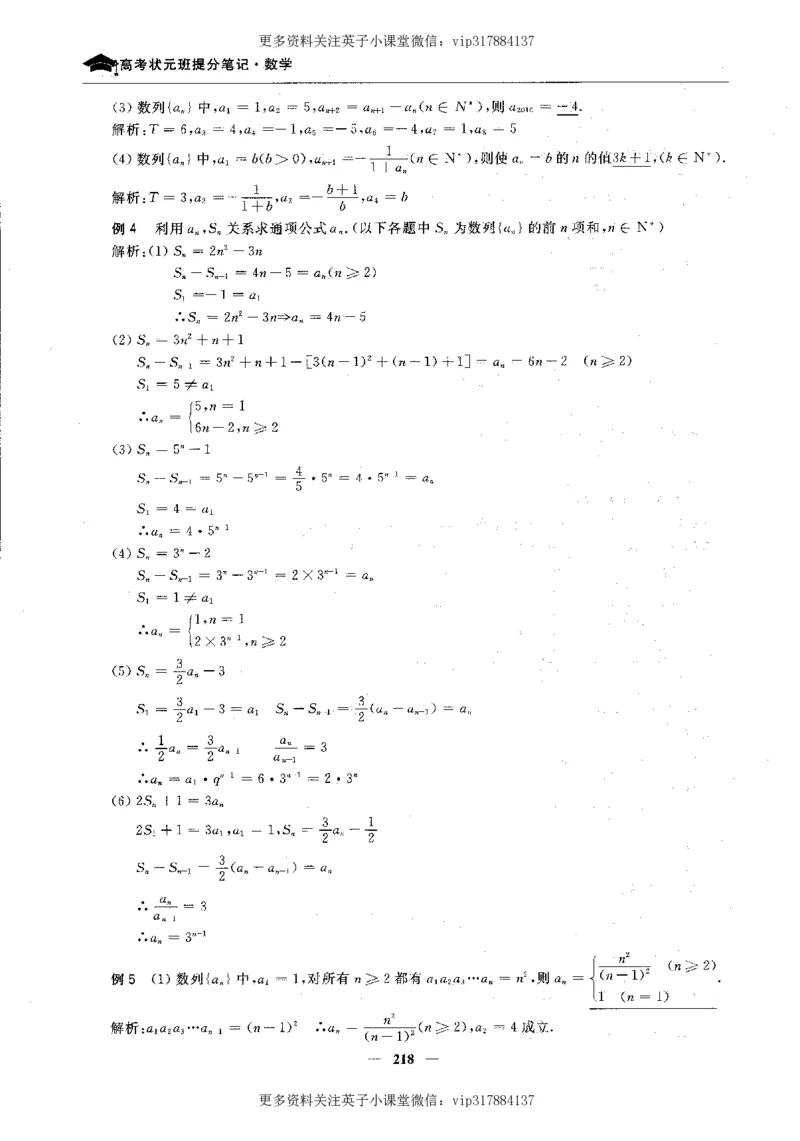 更多资料关注英子小课堂微信：vip317884137
高考状元班提分笔记·数学
(3) 数列{aₙ}中,a₁ = 1,a₂ = 5,aₙ₊₂ = aₙ₊₁ − aₙ(n ∈ N*),则 a₂₀₁₀ = −4.
解析:T = 6,a₃ = 4,a₄ = −1,a₅ = −5,a₆ = −4,a₇ = 1,a₈ = 5
(4) 数列{aₙ}中,a₁ = b(b > 0),aₙ₊₁ = −1/(1+aₙ)(n ∈ N*),则使 aₙ = b 的 n 的值3k+1,(k ∈ N*).
解析:T = 3,a₂ = −1/(1+b),a₃ = −(b+1)/b,a₄ = b
例4 利用 aₙ,Sₙ 关系求通项公式 aₙ.(以下各题中 Sₙ 为数列{aₙ}的前 n 项和,n ∈ N*)
解析:(1) Sₙ = 2n² − 3n
Sₙ − Sₙ₋₁ = 4n − 5 = aₙ(n ⩾ 2)
S₁ = −1 = a₁
∴Sₙ = 2n² − 3n⇒aₙ = 4n − 5
(2) Sₙ = 3n² + n + 1
Sₙ − Sₙ₋₁ = 3n² + n + 1 − [3(n−1)² + (n−1) + 1] = aₙ = 6n − 2 (n ⩾ 2)
S₁ = 5 ≠ a₁
∴aₙ = {5,n = 1
6n − 2,n ⩾ 2
(3) Sₙ = 5ⁿ − 1
Sₙ − Sₙ₋₁ = 5ⁿ − 5ⁿ⁻¹ = 4/5 · 5ⁿ = 4 · 5ⁿ⁻¹ = aₙ
S₁ = 4 = a₁
∴aₙ = 4 · 5ⁿ⁻¹
(4) Sₙ = 3ⁿ − 2
Sₙ − Sₙ₋₁ = 3ⁿ − 3ⁿ⁻¹ = 2 × 3ⁿ⁻¹ = aₙ
S₁ = 1 ≠ a₁
∴aₙ = {1,n = 1
2 × 3ⁿ⁻¹,n ⩾ 2
(5) Sₙ = 3/2 aₙ − 3
S₁ = 3/2 a₁ − 3 = a₁ Sₙ − Sₙ₋₁ = 3/2 (aₙ − aₙ₋₁) = aₙ
∴ 1/2 aₙ = 3/2 aₙ₋₁ aₙ/aₙ₋₁ = 3
∴aₙ = a₁ · qⁿ⁻¹ = 6 · 3ⁿ⁻¹ = 2 · 3ⁿ
(6) 2Sₙ + 1 = 3aₙ
2S₁ + 1 = 3a₁,a₁ = 1,Sₙ = 3/2 aₙ − 1/2
Sₙ − Sₙ₋₁ = 3/2 (aₙ − aₙ₋₁) = aₙ
∴ aₙ/aₙ₋₁ = 3
∴aₙ = 3ⁿ⁻¹
例5 (1) 数列{aₙ}中,a₁ = 1,对所有 n ⩾ 2 都有 a₁a₂a₃⋯aₙ = n²,则 aₙ = {n²/(n−1)² (n ⩾ 2)
1 (n = 1).
解析:a₁a₂a₃⋯aₙ₋₁ = (n−1)² ∴aₙ = n²/(n−1)² (n ⩾ 2),a₂ = 4 成立.
— 218 —
更多资料关注英子小课堂微信：vip317884137